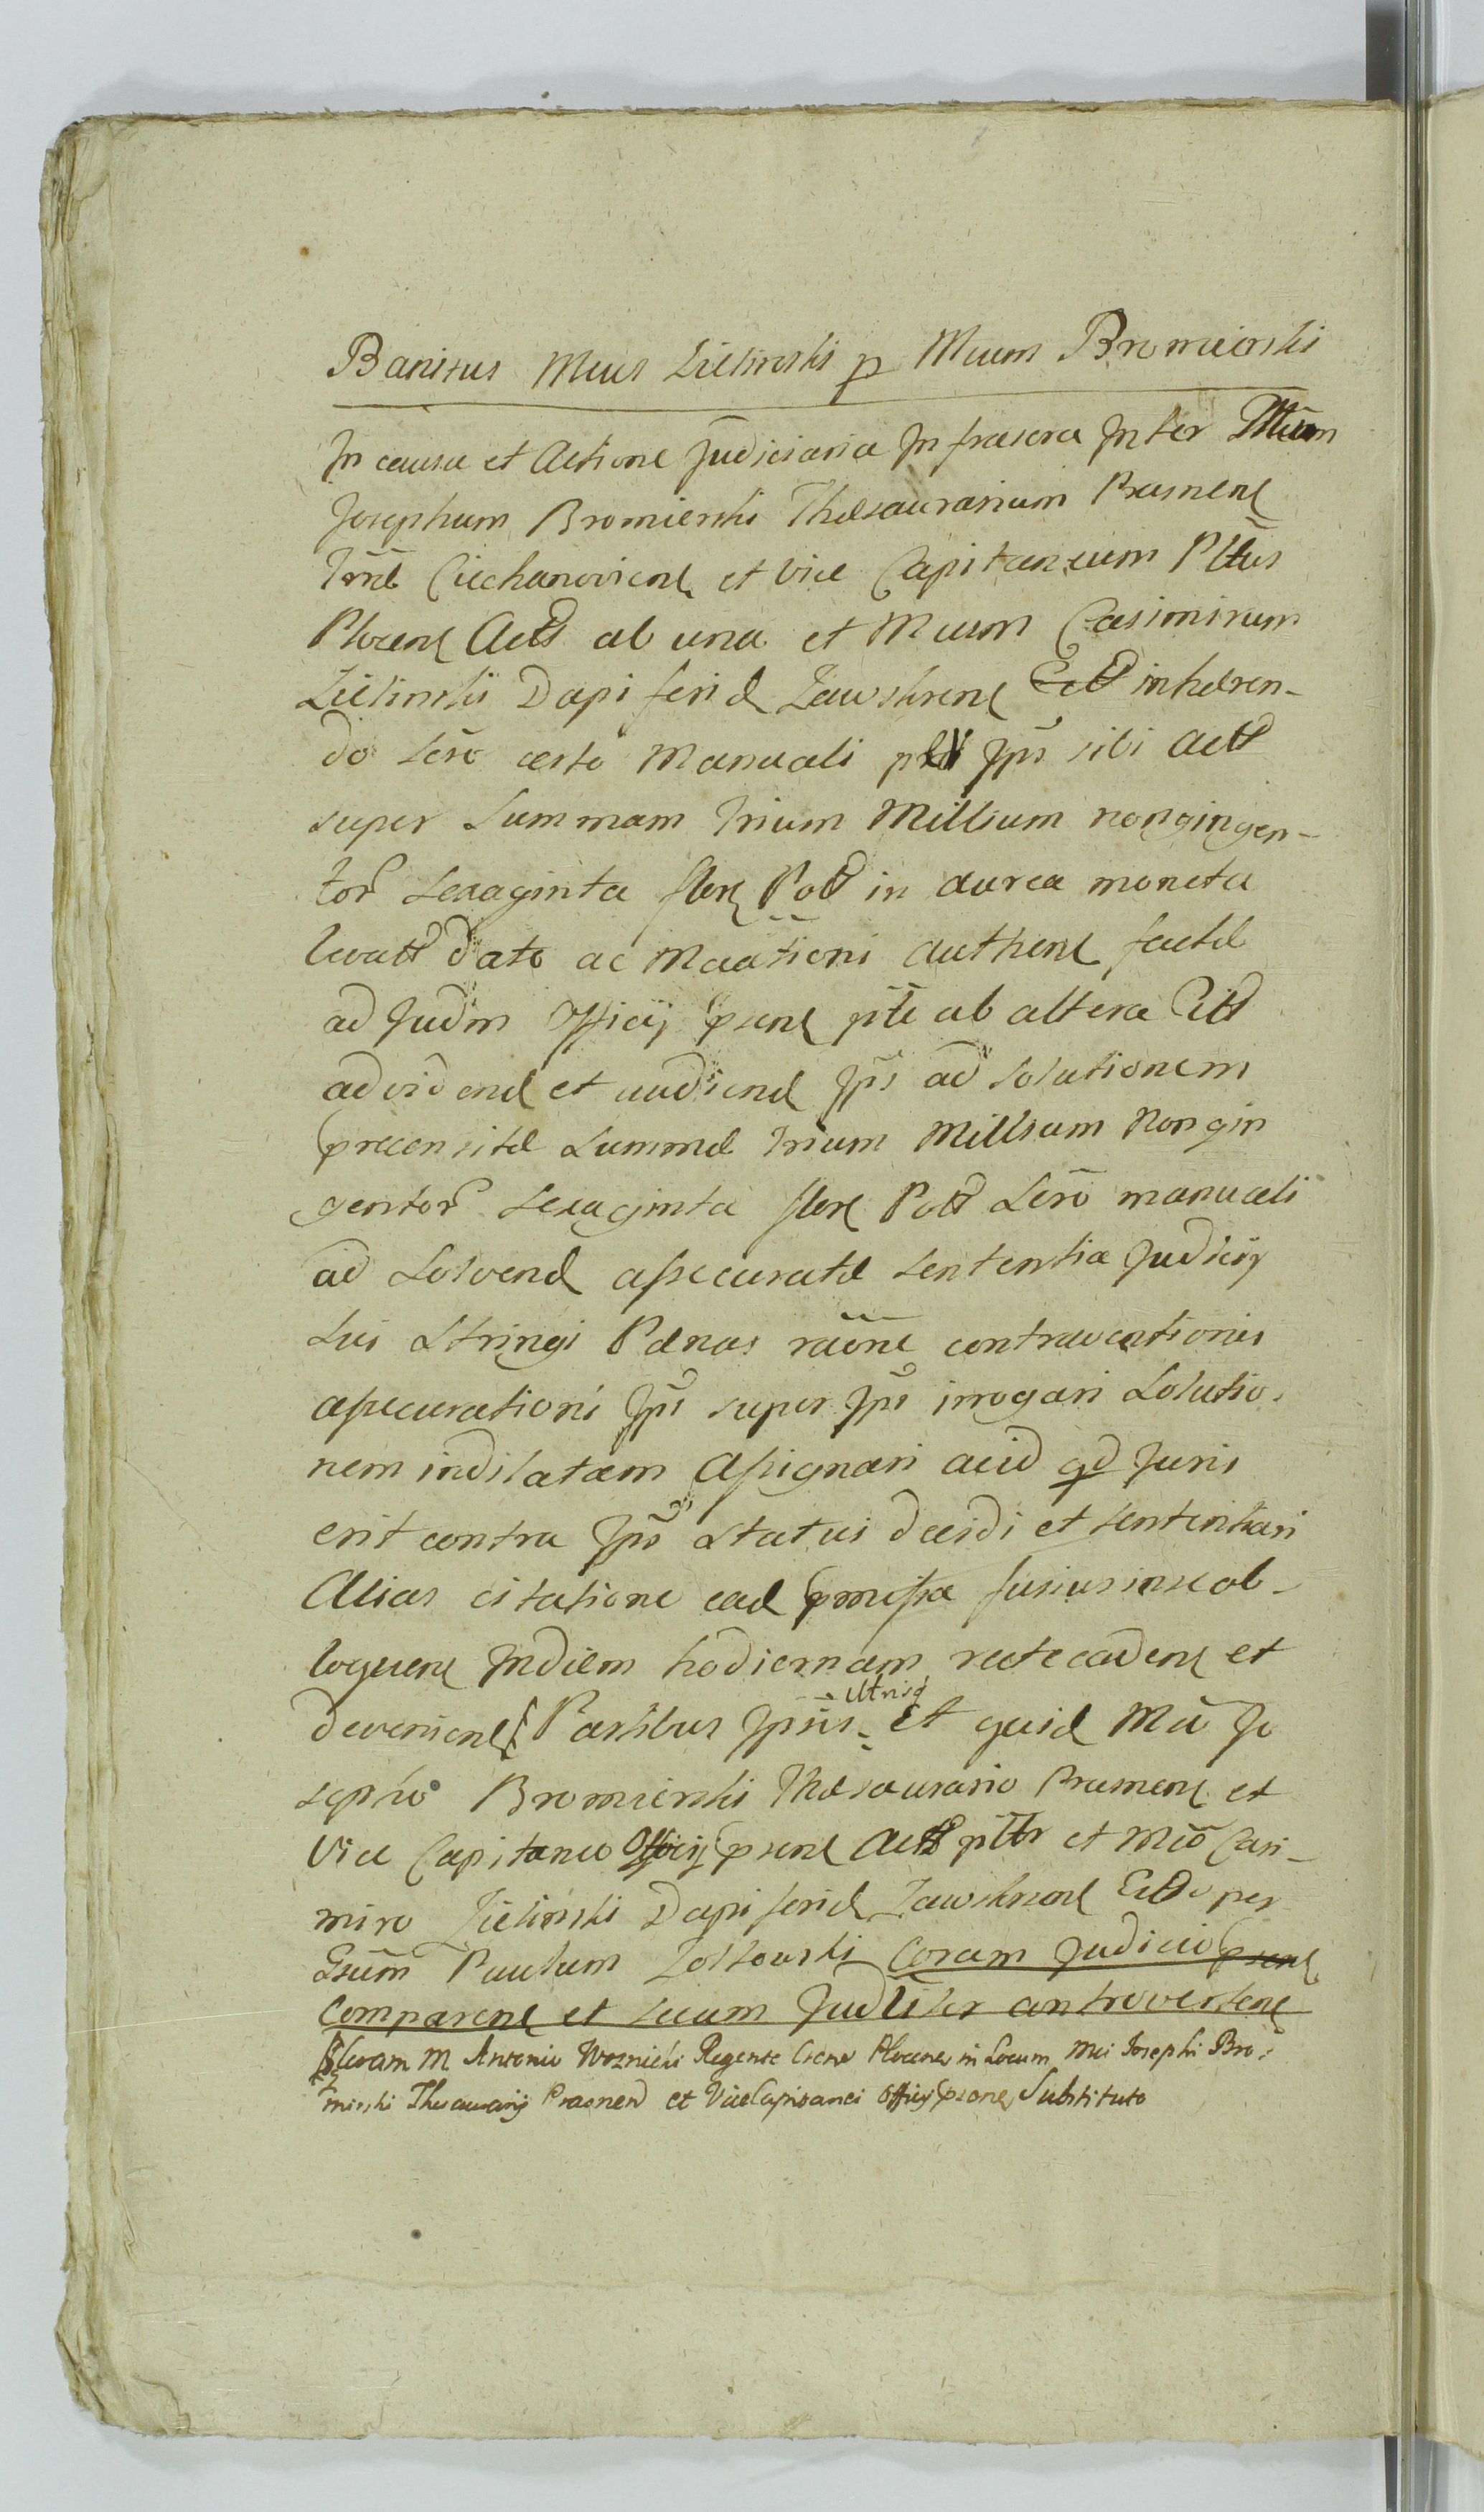 Banitus Mcus Zielinski p Mcum Bromierski
In causa et Actione Judiciaria Infrascra Inter Mcum
Josephum Bromierski Thesaurarium Prasnens
Trrae Ciechanoviens et Vice Capitaneum
Plocens Act ab una et Mcum Casimirum
Zielinski Dapiferid Zawskrens inhaeren-
do scro certo Manuali Ips sibi Act
super Summam Trium Millium nongingen-
tor Sexaginta flor Pol in aurea moneta
dato ac authen factae
ad Judm Officij psens pte ab altera Citt
ad vidend et audiend Ips ad Solutionem
precensitae Summae Trium Millium Nongin
gentor Sexaginta flor Pol Scro manuali
ad Solvend assecuratae sententia Judicij
sui Stringi Paenas raone contraventionis
assecurationi Ips super Ips irrogari Solutio-
nem indilatam Assignari acid qd Juris
erit contra Ips Statui decidi et sententiari
Alias citatione ead pmissa fusius in se ob-
loquen In diem hodiernam recte caden et
devenien Partibus Ipsis Utrisq Et quid Mco Jo
sepho Bromierski Thesaurario Prasnens et
Vice Capitaneo Officij psens Act et Mco Casi-
miro Zielinski Dapiferid Zawskrens per
Gsum Paulum Zoltowski Coram Judicio psens
Comparen et secum Judlitter controverten
Coram M Antonio Woznicki Regente Cscnr Plocens in Locum Mci Josephi Bro-
mirski Thesaurarij Prasnen et Vice Capitanei Officij psens Substituto